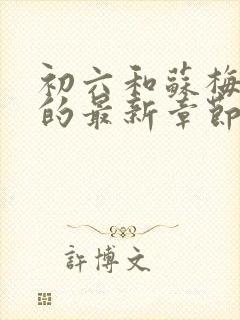 初六和蘇梅
的最新章節
許博文